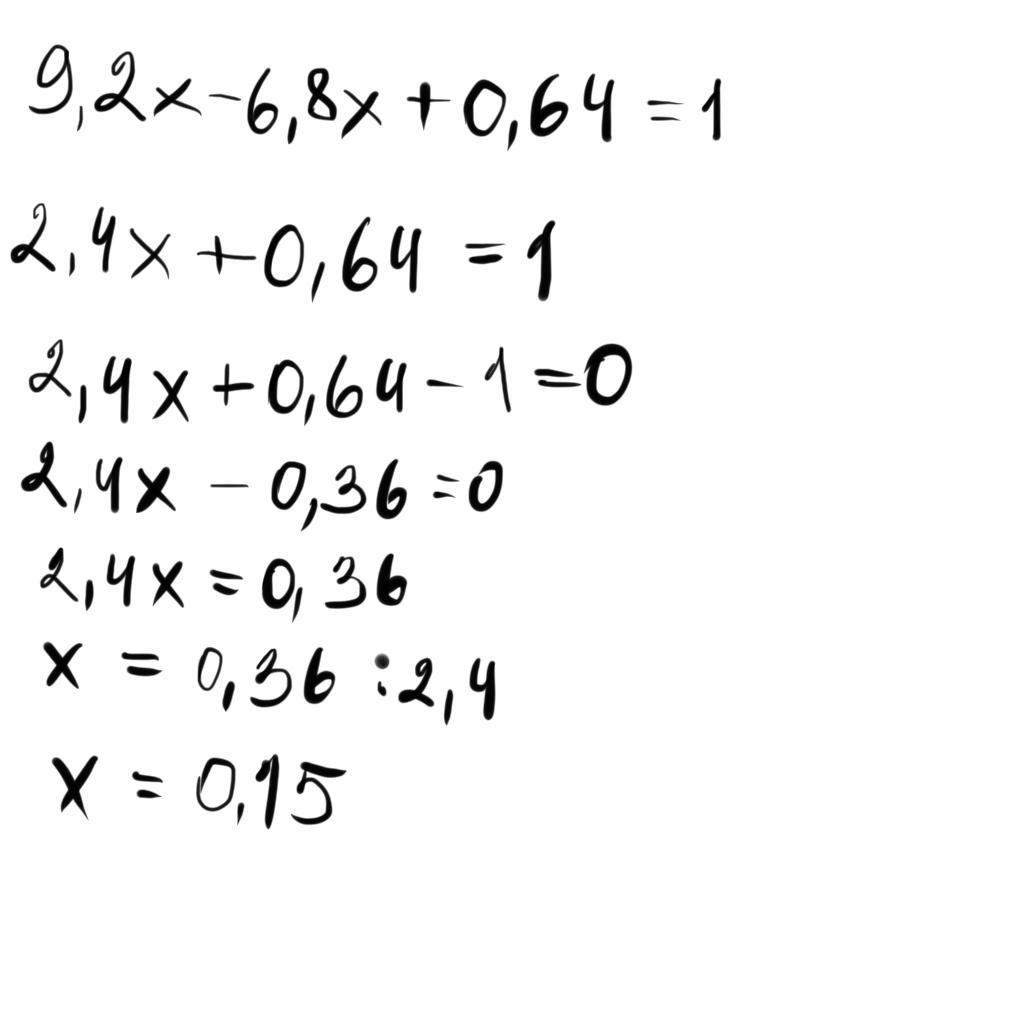 9,2x-6,8x+0,64=1
2,4x+0,64=1
2,4x+0,64-1=0
2,4x-0,36=0
2,4x=0,36
x=0,36:2,4
x=0,15